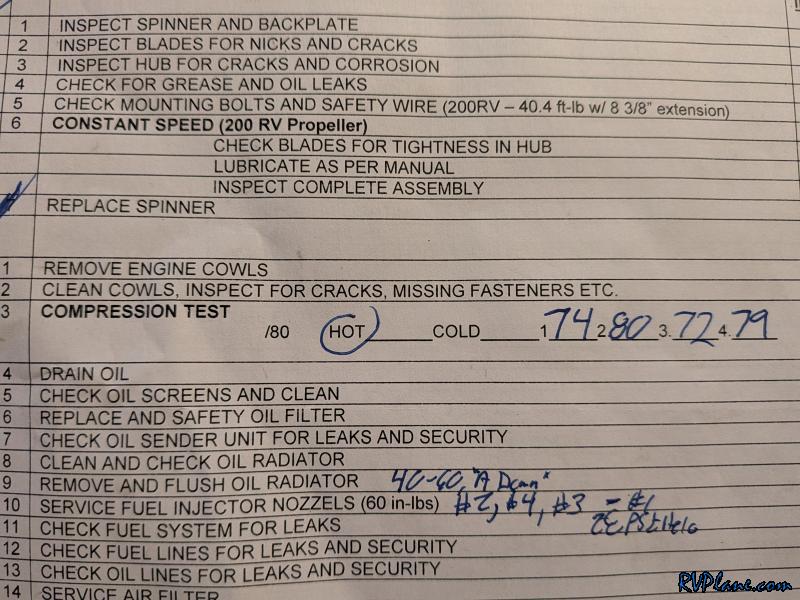 1 INSPECT SPINNER AND BACKPLATE
2 INSPECT BLADES FOR NICKS AND CRACKS
3 INSPECT HUB FOR CRACKS AND CORROSION
4 CHECK FOR GREASE AND OIL LEAKS
5 CHECK MOUNTING BOLTS AND SAFETY WIRE (200RV – 40.4 ft-lb w/ 8 3/8" extension)
6 CONSTANT SPEED (200 RV Propeller)
CHECK BLADES FOR TIGHTNESS IN HUB
LUBRICATE AS PER MANUAL
INSPECT COMPLETE ASSEMBLY
REPLACE SPINNER
1 REMOVE ENGINE COWLS
2 CLEAN COWLS, INSPECT FOR CRACKS, MISSING FASTENERS ETC.
3 COMPRESSION TEST
/80 HOT______COLD______ 1 74 2 80 3. 72 4. 79
4 DRAIN OIL
5 CHECK OIL SCREENS AND CLEAN
6 REPLACE AND SAFETY OIL FILTER
7 CHECK OIL SENDER UNIT FOR LEAKS AND SECURITY
8 CLEAN AND CHECK OIL RADIATOR
9 REMOVE AND FLUSH OIL RADIATOR 40-60, "A
10 SERVICE FUEL INJECTOR NOZZELS (60 in-lbs) #2, #4, #3 – #1
11 CHECK FUEL SYSTEM FOR LEAKS
12 CHECK FUEL LINES FOR LEAKS AND SECURITY
13 CHECK OIL LINES FOR LEAKS AND SECURITY
14 SERVICE AIR FILTER
RVPlane.com